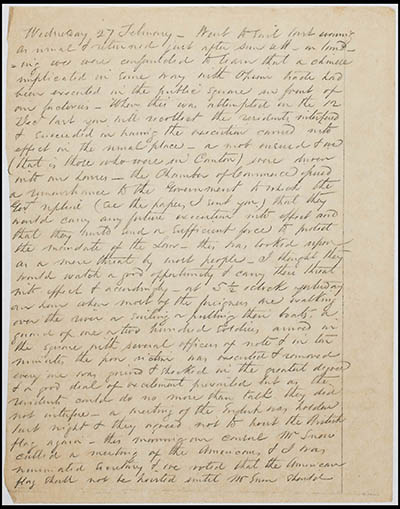 Wednesday 27 February - Went to Sail last evening
as usual & returned just after sun set - on land-
-ing we were confounded to learn that a chinese
implicated in some way with Opium trade had
been executed in the public square in front of
our factories - When this was attempted on the 12
Dec last you will recollect the residents interfered
& succeeded in having the execution carried into
effect in the usual place - a mob ensued & we
(that is those who were in Canton) were driven
into our houses - the Chamber of Commerce offered
a remonstrance to the Government to which the
Govt replied (see the papers I send you) that they
would carry any future execution into effect and
that they would send a sufficient force to protect
the mandate of the Law - this was looked upon
as a mere threat by most people - I thought they
would watch a good opportunity & carry their threat
into effect & accordingly - at 5½ oclock yesterday
an hour when most of the foreigners are walking
over the river or sailing or pulling their boats, a
guard of one or two hundred soldiers arrived in
the square with several officers of note & in ten
minutes the poor victim was executed & removed
every one was grieved & shocked in the greatest degree
& a good deal of excitement prevailed but as the
residents could do no more than talk they did
not interfere - a meeting of the English was holden
last night & they agreed not to hoist the British
flag again - this morning our consul Mr Snow
called a meeting of the Americans, & I was
nominated Secretary & we voted that the American
flag should not be hoisted until Mr Snow should